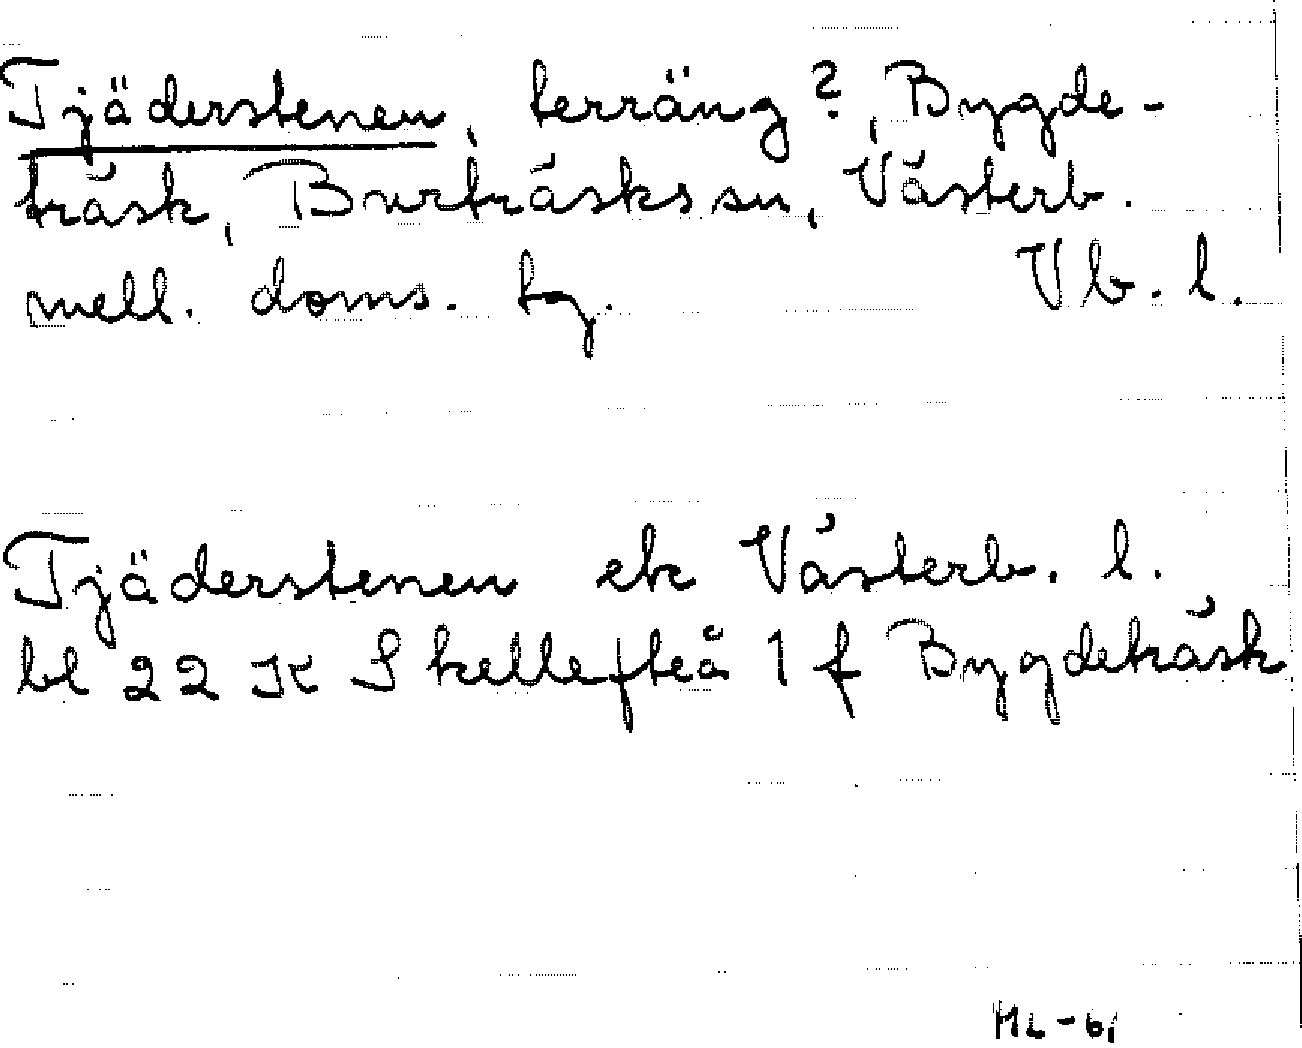 Tjäderstenen, terräng?, Bygde-
träsk, Burträsks sn, Västerb.
mell. doms. tg. Vb. l.
Tjäderstenen ek Västerb. l.
bl 22 K Skellefteå 1 f Bygdeträsk
ML-61